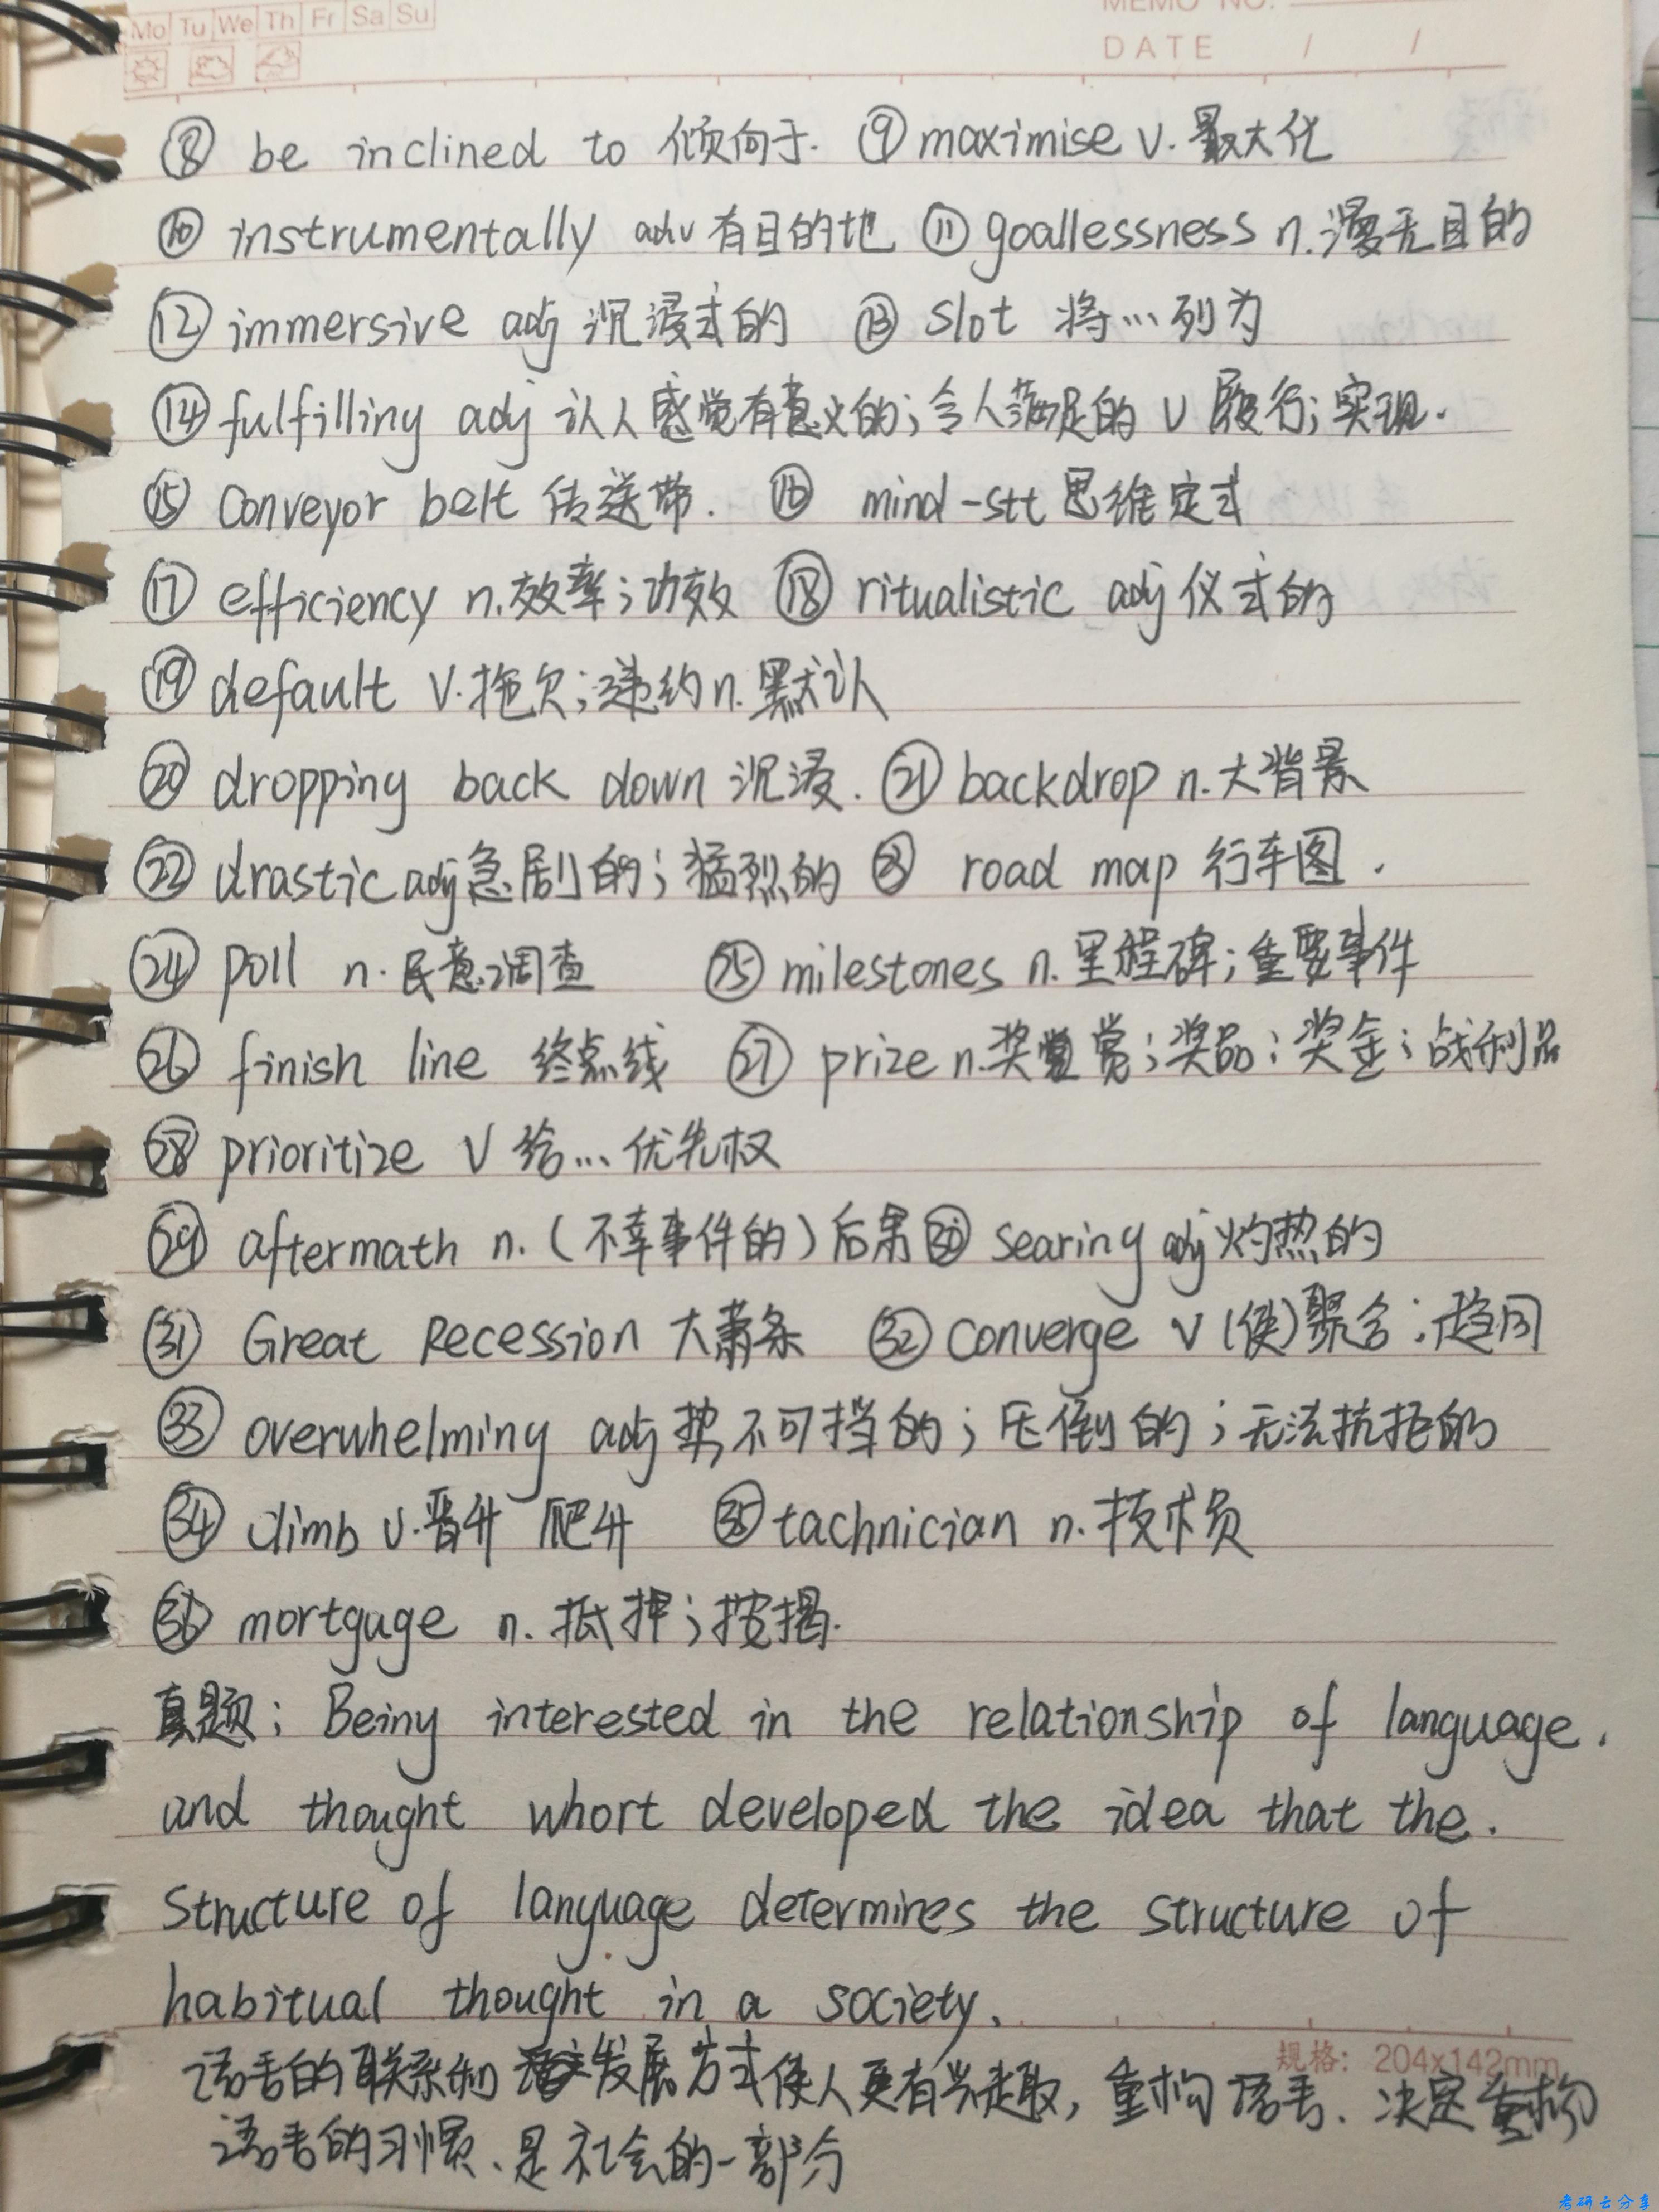 Mo Tu We Th Fr Sa Su
MEMO NO.
DATE / /
⑧ be inclined to 倾向于. ⑨ maximise v. 最大化
⑩ instrumentally adv 有目的地 ⑪ goallessness n. 漫无目的
⑫ immersive adj 沉浸式的 ⑬ slot 将…列为
⑭ fulfilling adj 认人感觉有意义的;令人满足的 v 履行;实现.
⑮ conveyor belt 传送带. ⑯ mind-stt 思维定式
⑰ efficiency n. 效率;功效 ⑱ ritualistic adj 仪式的
⑲ default v. 拖欠;违约 n. 默认
⑳ dropping back down 沉浸. ㉑ backdrop n. 大背景
㉒ drastic adj 急剧的;猛烈的 ㉓ road map 行车图.
㉔ poll n. 民意调查 ㉕ milestones n. 里程碑;重要事件
㉖ finish line 终点线 ㉗ prize n. 奖赏;奖品;奖金;战利品
㉘ prioritize v 给…优先权
㉙ aftermath n. (不幸事件的)后果 ㉚ searing adj 灼热的
㉛ Great Recession 大萧条 ㉜ converge v (使)聚合;趋同
㉝ overwhelming adj 势不可挡的;压倒的;无法抗拒的
㉞ climb v. 晋升 爬升 ㉟ tachnician n. 技术员
㊱ mortguge n. 抵押;按揭.
真题: Being interested in the relationship of language.
and thought whort developed the idea that the.
structure of language determines the structure of
habitual thought in a society.
规格: 204x142mm
语言的联系和发展方式使人更有兴趣, 重构语言、决定重构
语言的习惯、是社会的一部分
考研云分享